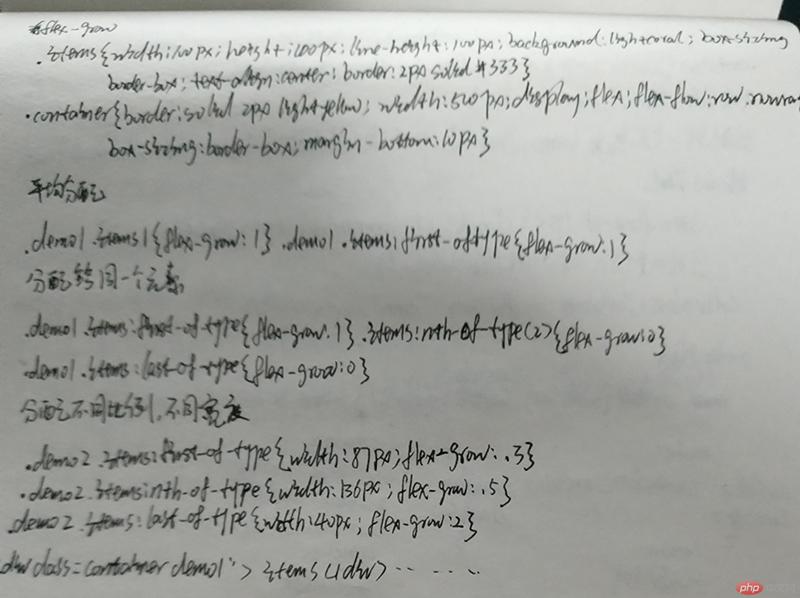 flex-grow
.items{width:100px; height:100px; line-height:100px; background:lightcoral; box-sizing
border-box; text-align:center; border:2px solid #333}
.container{border:solid 2px lightyellow; width:500px; display:flex; flex-flow:row nowrap
box-sizing:border-box; margin-bottom:10px}
平均分配
.demo1 .items1{flex-grow:1} .demo1 .items:first-of-type{flex-grow:1}
分配给同一个元素
.demo1 .items:first-of-type{flex-grow:1} .items:nth-of-type(2){flex-grow:0}
.demo1 .items:last-of-type{flex-grow:0}
分配不同比例,不同宽度
.demo2 .items:first-of-type{width:87px; flex-grow:.3}
.demo2 .items:nth-of-type{width:136px; flex-grow:.5}
.demo2 .items:last-of-type{width:40px; flex-grow:2}
div class=container demo1"> items</div> ... ...
php